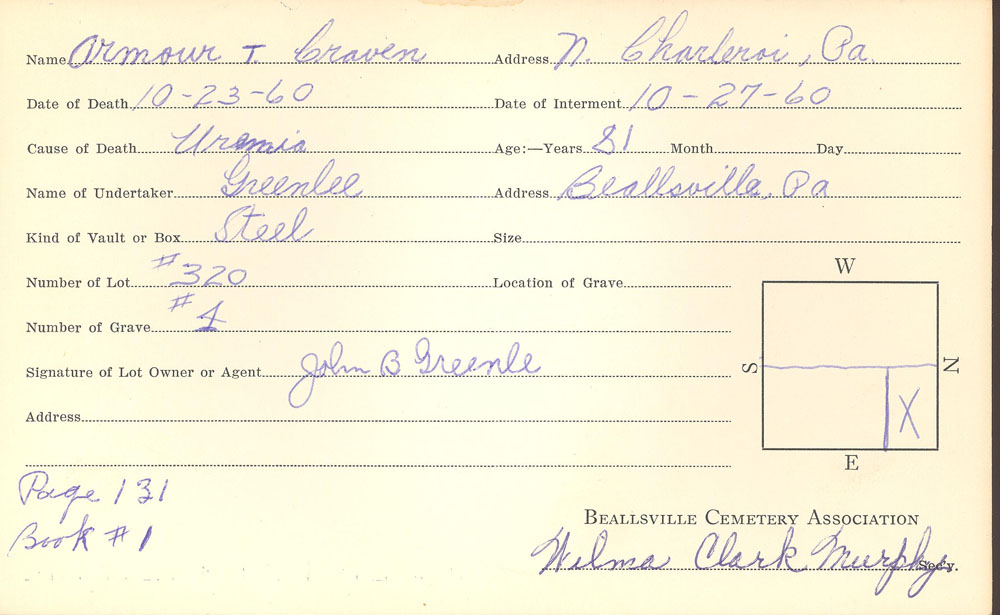 Name Armour T. Craven Address N. Charleroi, Pa.
Date of Death 10-23-60 Date of Interment 10-27-60
Cause of Death Uremia Age:—Years 81 Month Day
Name of Undertaker Greenlee Address Beallsville, Pa
Kind of Vault or Box Steel Size
Number of Lot #320 Location of Grave
Number of Grave #1
Signature of Lot Owner or Agent John B Greenle
Address
W
S N
X
E
Page 131
Book #1
Beallsville Cemetery Association
Wilma Clark Murphy Sec'y.